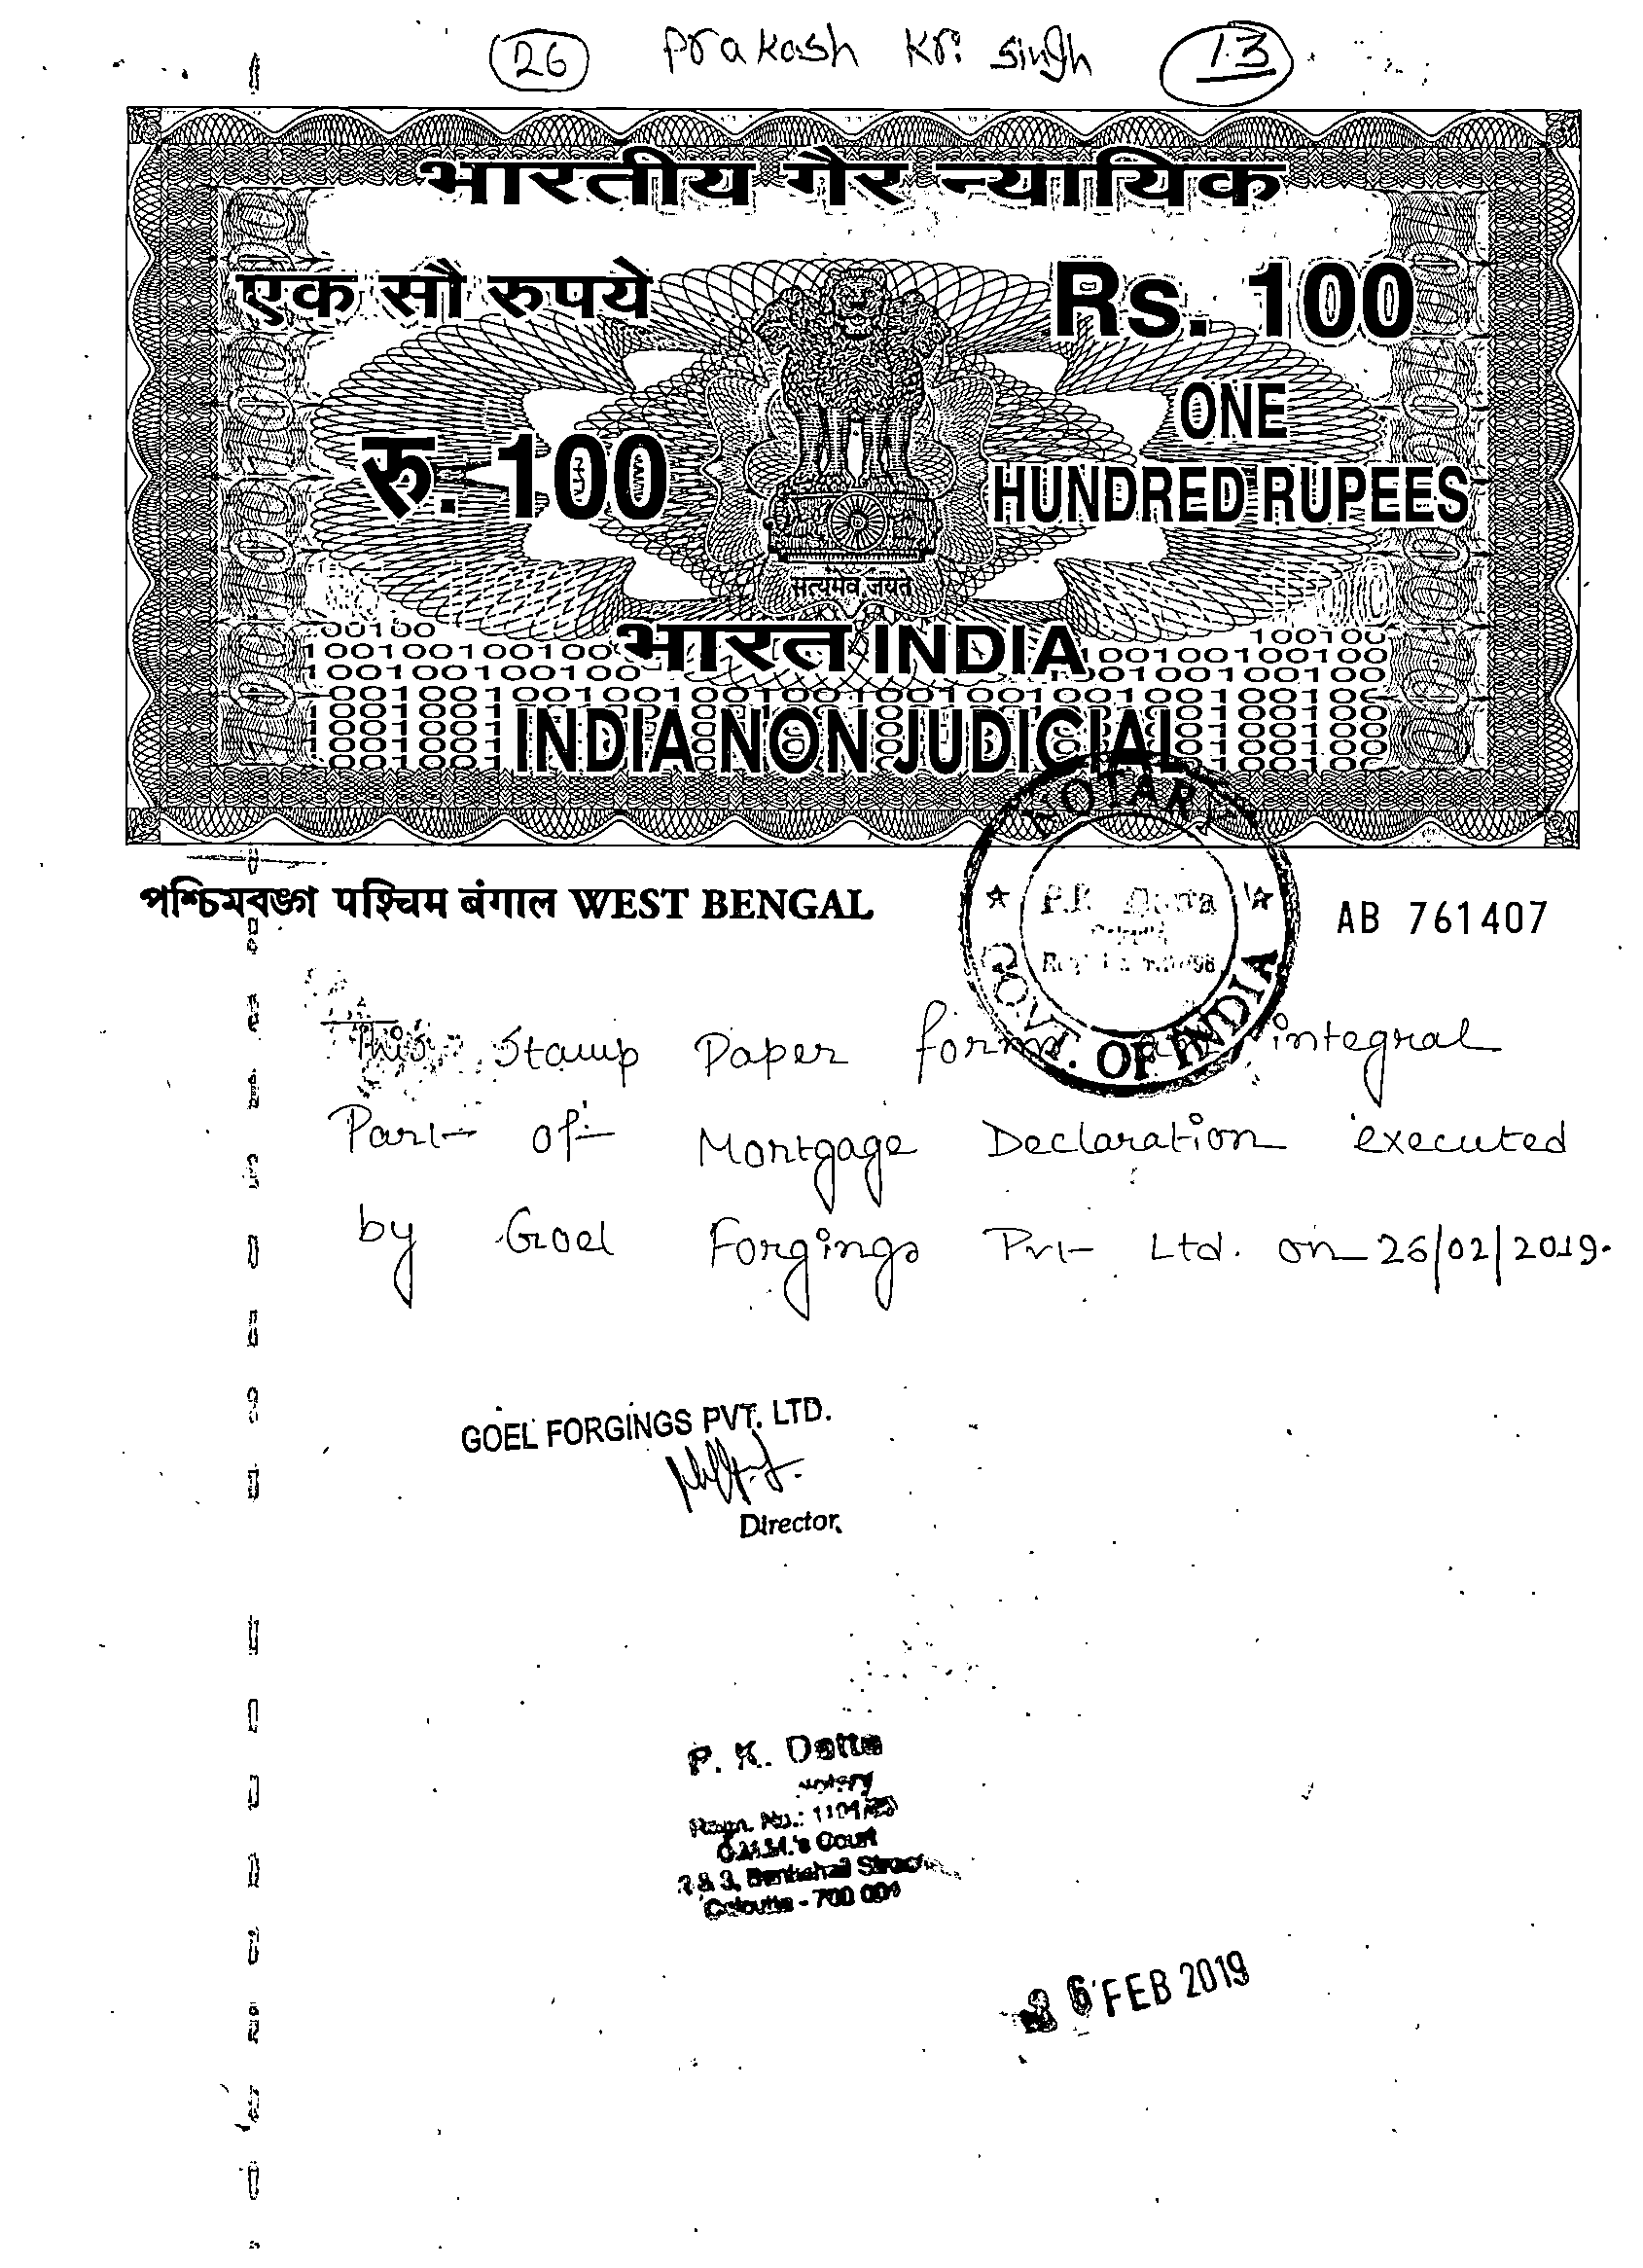 26 Prakash Kr. Singh 13
भारतीय गैर न्यायिक
एक सौ रुपये Rs. 100
रु. 100 ONE
HUNDRED RUPEES
सत्यमेव जयते
भारत INDIA
INDIA NON JUDICIAL
পশ্চিমবঙ্গ पश्चिम बंगाल WEST BENGAL AB 761407
NOTARY
GOVT. OF INDIA
This Stamp Paper forms an integral
Part of Mortgage Declaration executed
by Goel Forgings Pvt Ltd. on 26/02/2019.
GOEL FORGINGS PVT. LTD.
Director.
P. K. Datta
Notary
Regn. No.:
C.M.M.'s Court
2 & 3, Bankshall Street
Calcutta - 700 001
26 FEB 2019